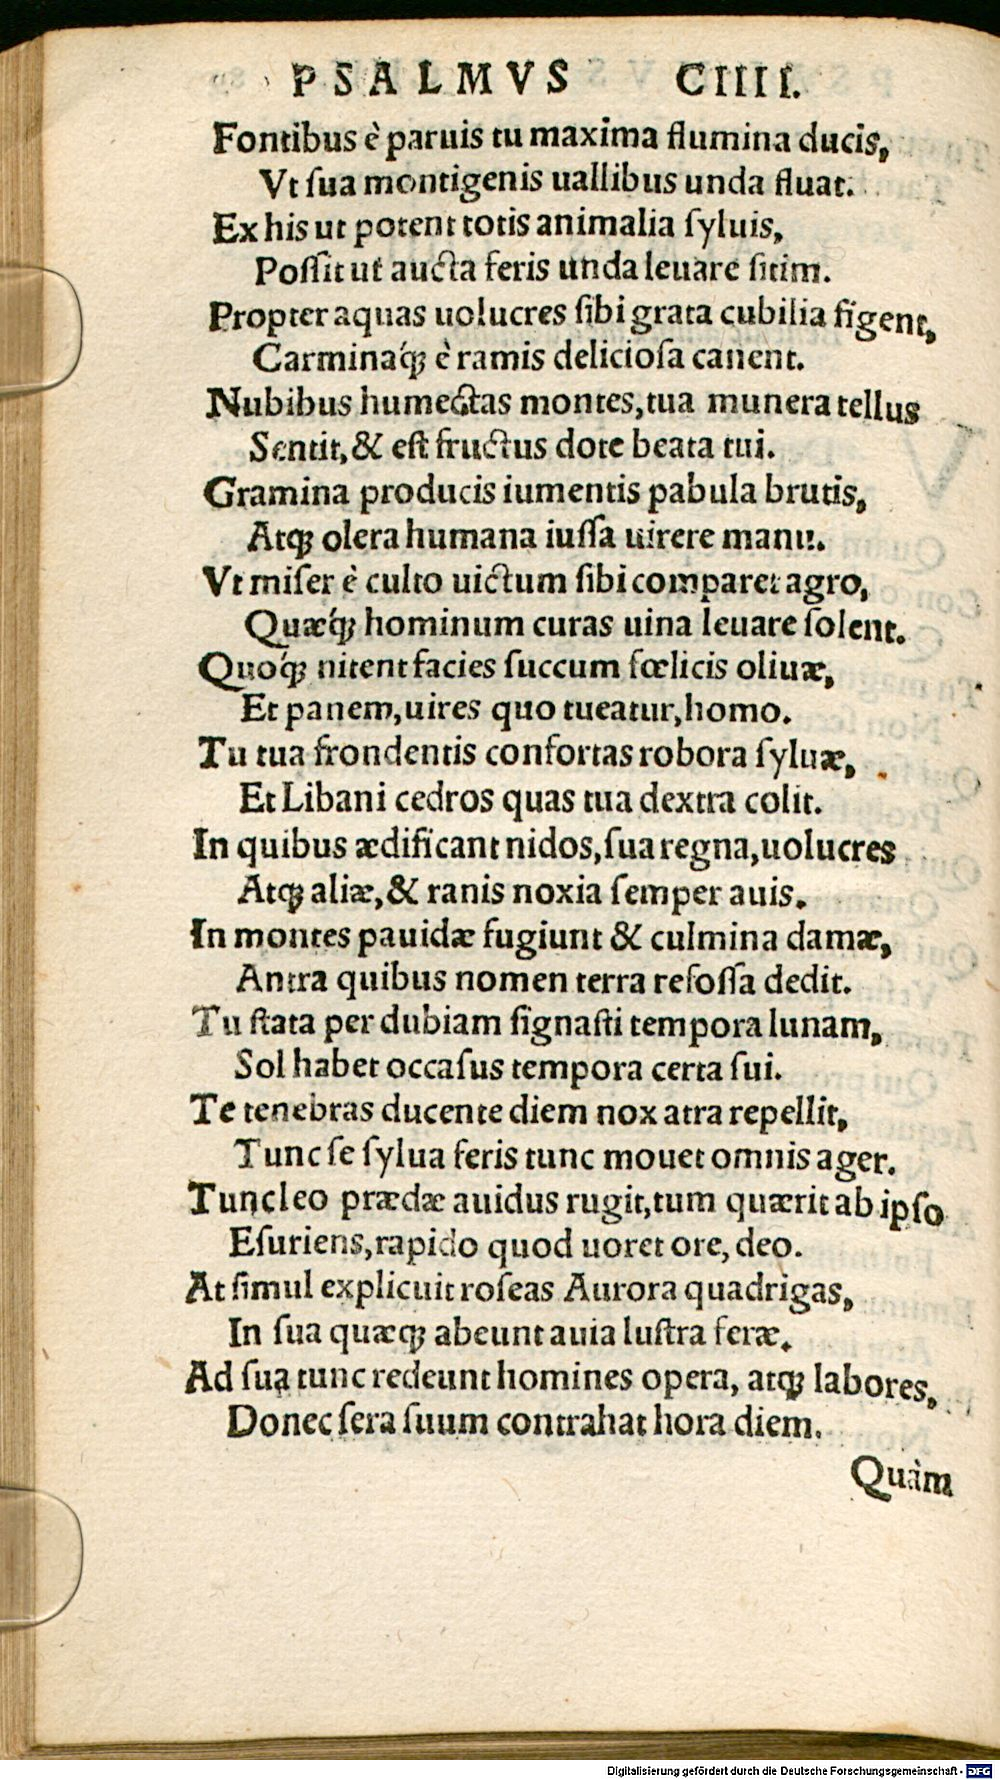 PSALMVS CIIII.
Fontibus è paruis tu maxima flumina ducis,
Vt ſua montigenis uallibus unda fluat.
Ex his ut potent totis animalia ſyluis,
Poſſit ut aucta feris unda leuare ſitim.
Propter aquas uolucres ſibi grata cubilia figent,
Carminaq́ꝫ è ramis delicioſa canent.
Nubibus humectas montes, tua munera tellus
Sentit, & eſt fructus dote beata tui.
Gramina producis iumentis pabula brutis,
Atqꝫ olera humana iuſſa uirere manu.
Vt miſer è culto uictum ſibi comparet agro,
Quæq́ꝫ hominum curas uina leuare ſolent.
Quoq́ꝫ nitent facies ſuccum fœlicis oliuæ,
Et panem, uires quo tueatur, homo.
Tu tua frondentis confortas robora ſyluæ,
Et Libani cedros quas tua dextra colit.
In quibus ædificant nidos, ſua regna, uolucres
Atqꝫ aliæ, & ranis noxia ſemper auis.
In montes pauidæ fugiunt & culmina damæ,
Antra quibus nomen terra refoſſa dedit.
Tu ſtata per dubiam ſignaſti tempora lunam,
Sol habet occaſus tempora certa ſui.
Te tenebras ducente diem nox atra repellit,
Tunc ſe ſylua feris tunc mouet omnis ager.
Tunc leo prædæ auidus rugit, tum quærit ab ipſo
Eſuriens, rapido quod uoret ore, deo.
At ſimul explicuit roſeas Aurora quadrigas,
In ſua quæqꝫ abeunt auia luſtra feræ.
Ad ſua tunc redeunt homines opera, atqꝫ labores,
Donec ſera ſuum contrahat hora diem.
Quàm
Digitalisierung gefördert durch die Deutsche Forschungsgemeinschaft - DFG